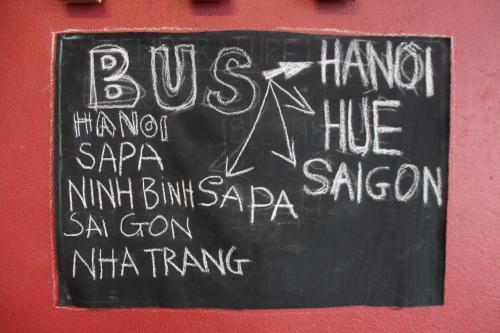 BUS
HANỘI
HUẾ
SAIGON
SAPA
HANOI
SAPA
NINH BINH
SAI GON
NHA TRANG